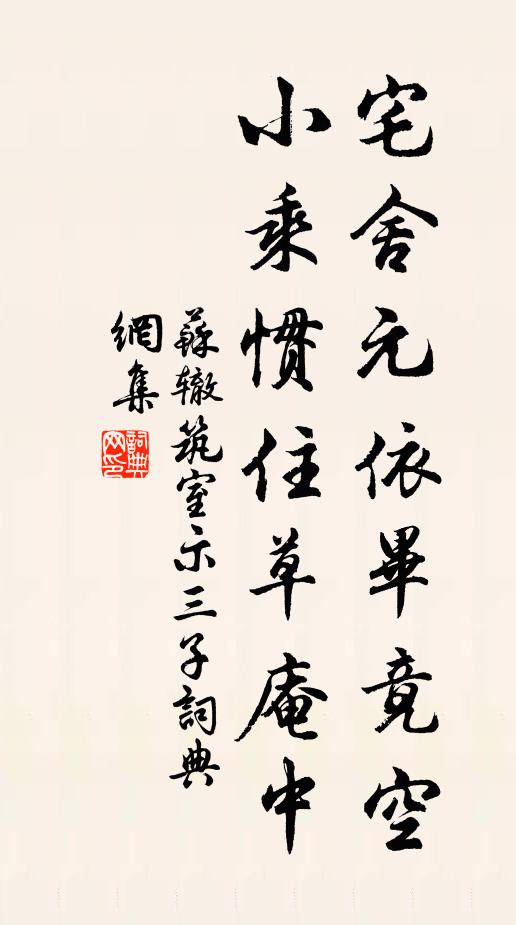 宅舍元依畢竟空
小乘慣住草庵中
蘇轍筑室示三子詞典
網集
詞典
网印